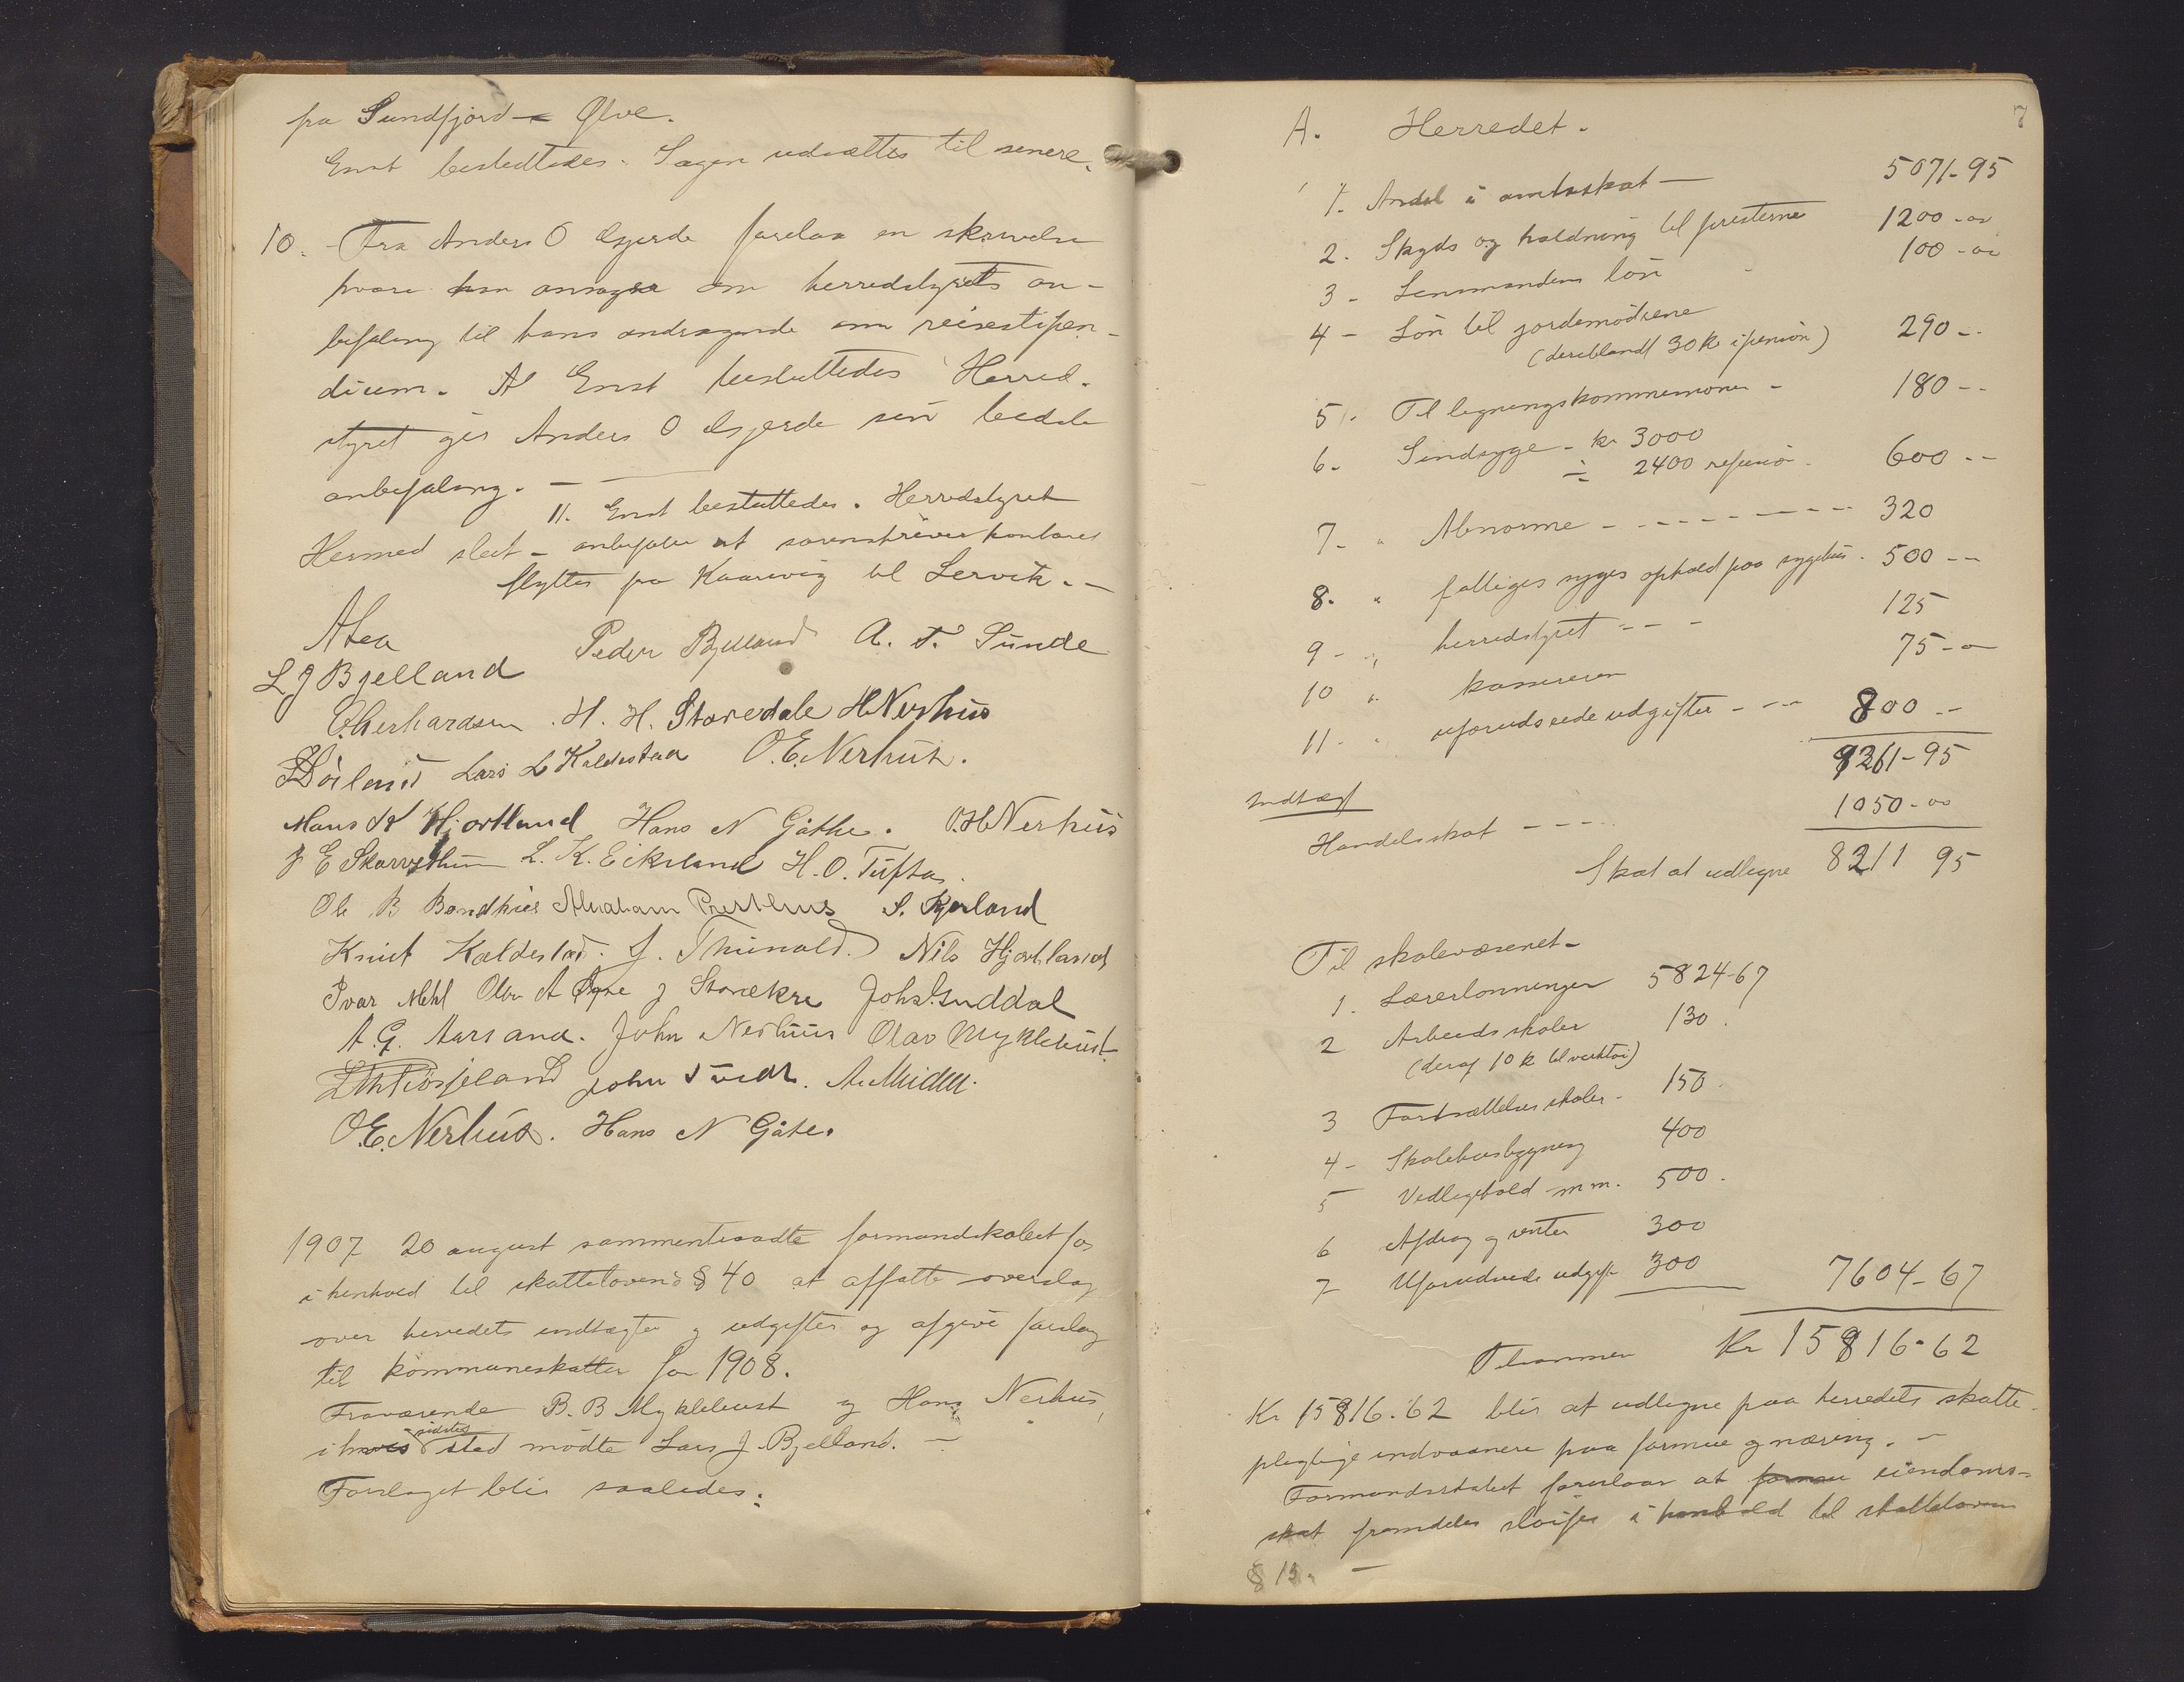 fra Sundfjord – Ølve.
Enst besluttedes. Sagen udsættes til senere.
10. Fra Anders O forelaa en skrivelse
hvori han ansøger om herredstyrets an-
befaling til hans andragende om reisestipen-
dium. At Enst besluttedes Herred-
styret gir Anders O sin bedste
anbefaling. —
11. Enst besluttedes. Herredstyret
Hermed slut – anbefaler at sorenskriverkontoret
flyttes fra Kaarevig til Lervik. —
Peder Bjelland A. T. Sunde
L J Bjelland
H. H. Staredale H Nerhus
Lars L Kaldestad O. E. Nerhus.
Mons Hjortland Hans N Gåthe. O. H Nerhus
L. K. Eikeland H. O. Tufta.
Ole B Bondhus Abraham Presthus S. Kjerland
Knut Kaldestad. J. Thunold. Nils Hjortland
Ivar Mehl J Starekre Joh. Guddal
A. G. Aarsand. John Nerhus Olav Myklebust
John
O. E. Nerhus. Hans N Gåte.
1907 20 august sammentraadte formandskabet for
i henhold til skattelovens § 40 at affatte overslag
over herredets indtægter og udgifter og afgive forslag
til kommuneskatter for 1908.
Fraværende B. B Myklebust og Hans Nerhus,
i hvis sidstes sted mødte Lars J. Bjelland. —
Forslaget blir saaledes:
7
A. Herredet.
1. Andel i amtsskat — 5071-95
2. Skyds og holdning til presterne 1200-00
3 - Lensmandens løn 100-00
4 - Løn til jordemødrene
(deriblandt 30 kr i pension) 290 --
5. Til ligningskommissionen - 180 --
6. Sindsyge - kr 3000
÷ 2400 refusion. 600 --
7 - " Abnorme - - - - - 320
8. " fattiges syges ophold paa sygehus. 500 --
9 - " herredstyret - - - 125
10 " kassereren 75-00
11 - " uforudseede udgifter - - - 800 --
9261-95
Indtægt
Handelsskat - - - 1050-00
Skat at udligne 8211 95
Til skolevæsenet -
1. Lærerlønninger 5824-67
2 Arbeidsskoler 130.
(deraf 10 k til verktøi)
3 Fortsættelsesskoler - 150.
4 - Skolehusbygning 400
5 Vedligehold m m. 500.
6 Afdrag og renter 300
7 Uforudseede udgift 300 7604-67
Tilsammen Kr 15816-62
Kr 15816.62 blir at udligne paa herredets skatte-
pligtige indvaanere paa formue og næring. —
Formandskabet foreslaar at eiendoms-
skat fremdeles sløifes i henhold til skatteloven
§ 13. —